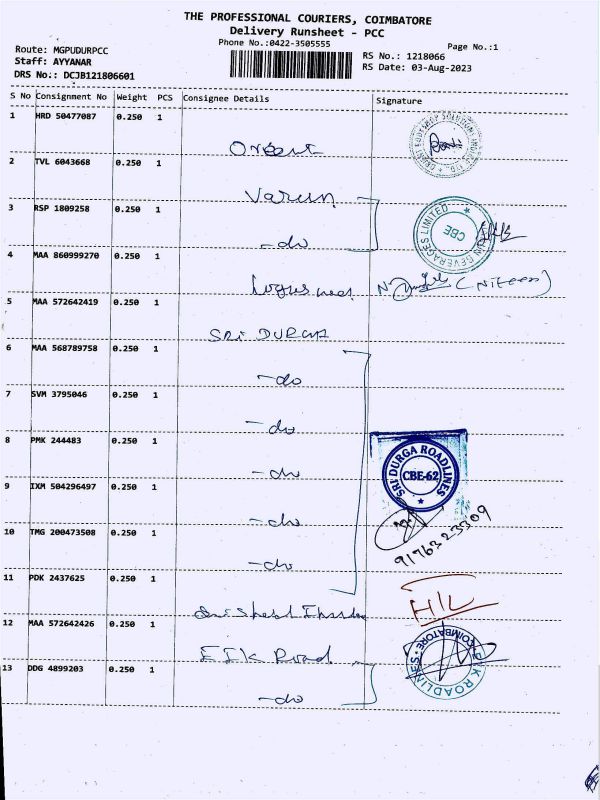 THE PROFESSIONAL COURIERS, COIMBATORE
Delivery Runsheet - PCC
Phone No.:0422-3505555
Page No.:1
Route: MGPUDURPCC
Staff: AYYANAR
DRS No.: DCJB121806601
RS No.: 1218066
RS Date: 03-Aug-2023
S No Consignment No Weight PCS Consignee Details Signature
1 HRD 50477087 0.250 1
Orbent
2 TVL 6043668 0.250 1
Varun
3 RSP 1809258 0.250 1
-do
BEVERAGES LIMITED
CBE
4 MAA 860999270 0.250 1
5 MAA 572642419 0.250 1
SRI DURGA
6 MAA 568789758 0.250 1
-do
7 SVM 3795046 0.250 1
-do
8 PMK 244483 0.250 1
-do
SRI DURGA ROADLINES
CBE-62
9 IXM 504296497 0.250 1
-do
10 TMG 200473508 0.250 1
-do
9176323309
11 PDK 2437625 0.250 1
12 MAA 572642426 0.250 1
Road
COIMBATORE
ROADLINES
13 DDG 4899203 0.250 1
-do